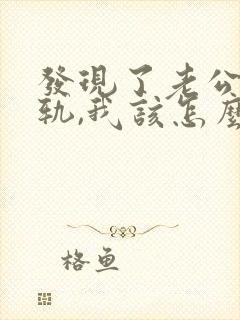 發現了老公
軌,我該怎麼
格魚